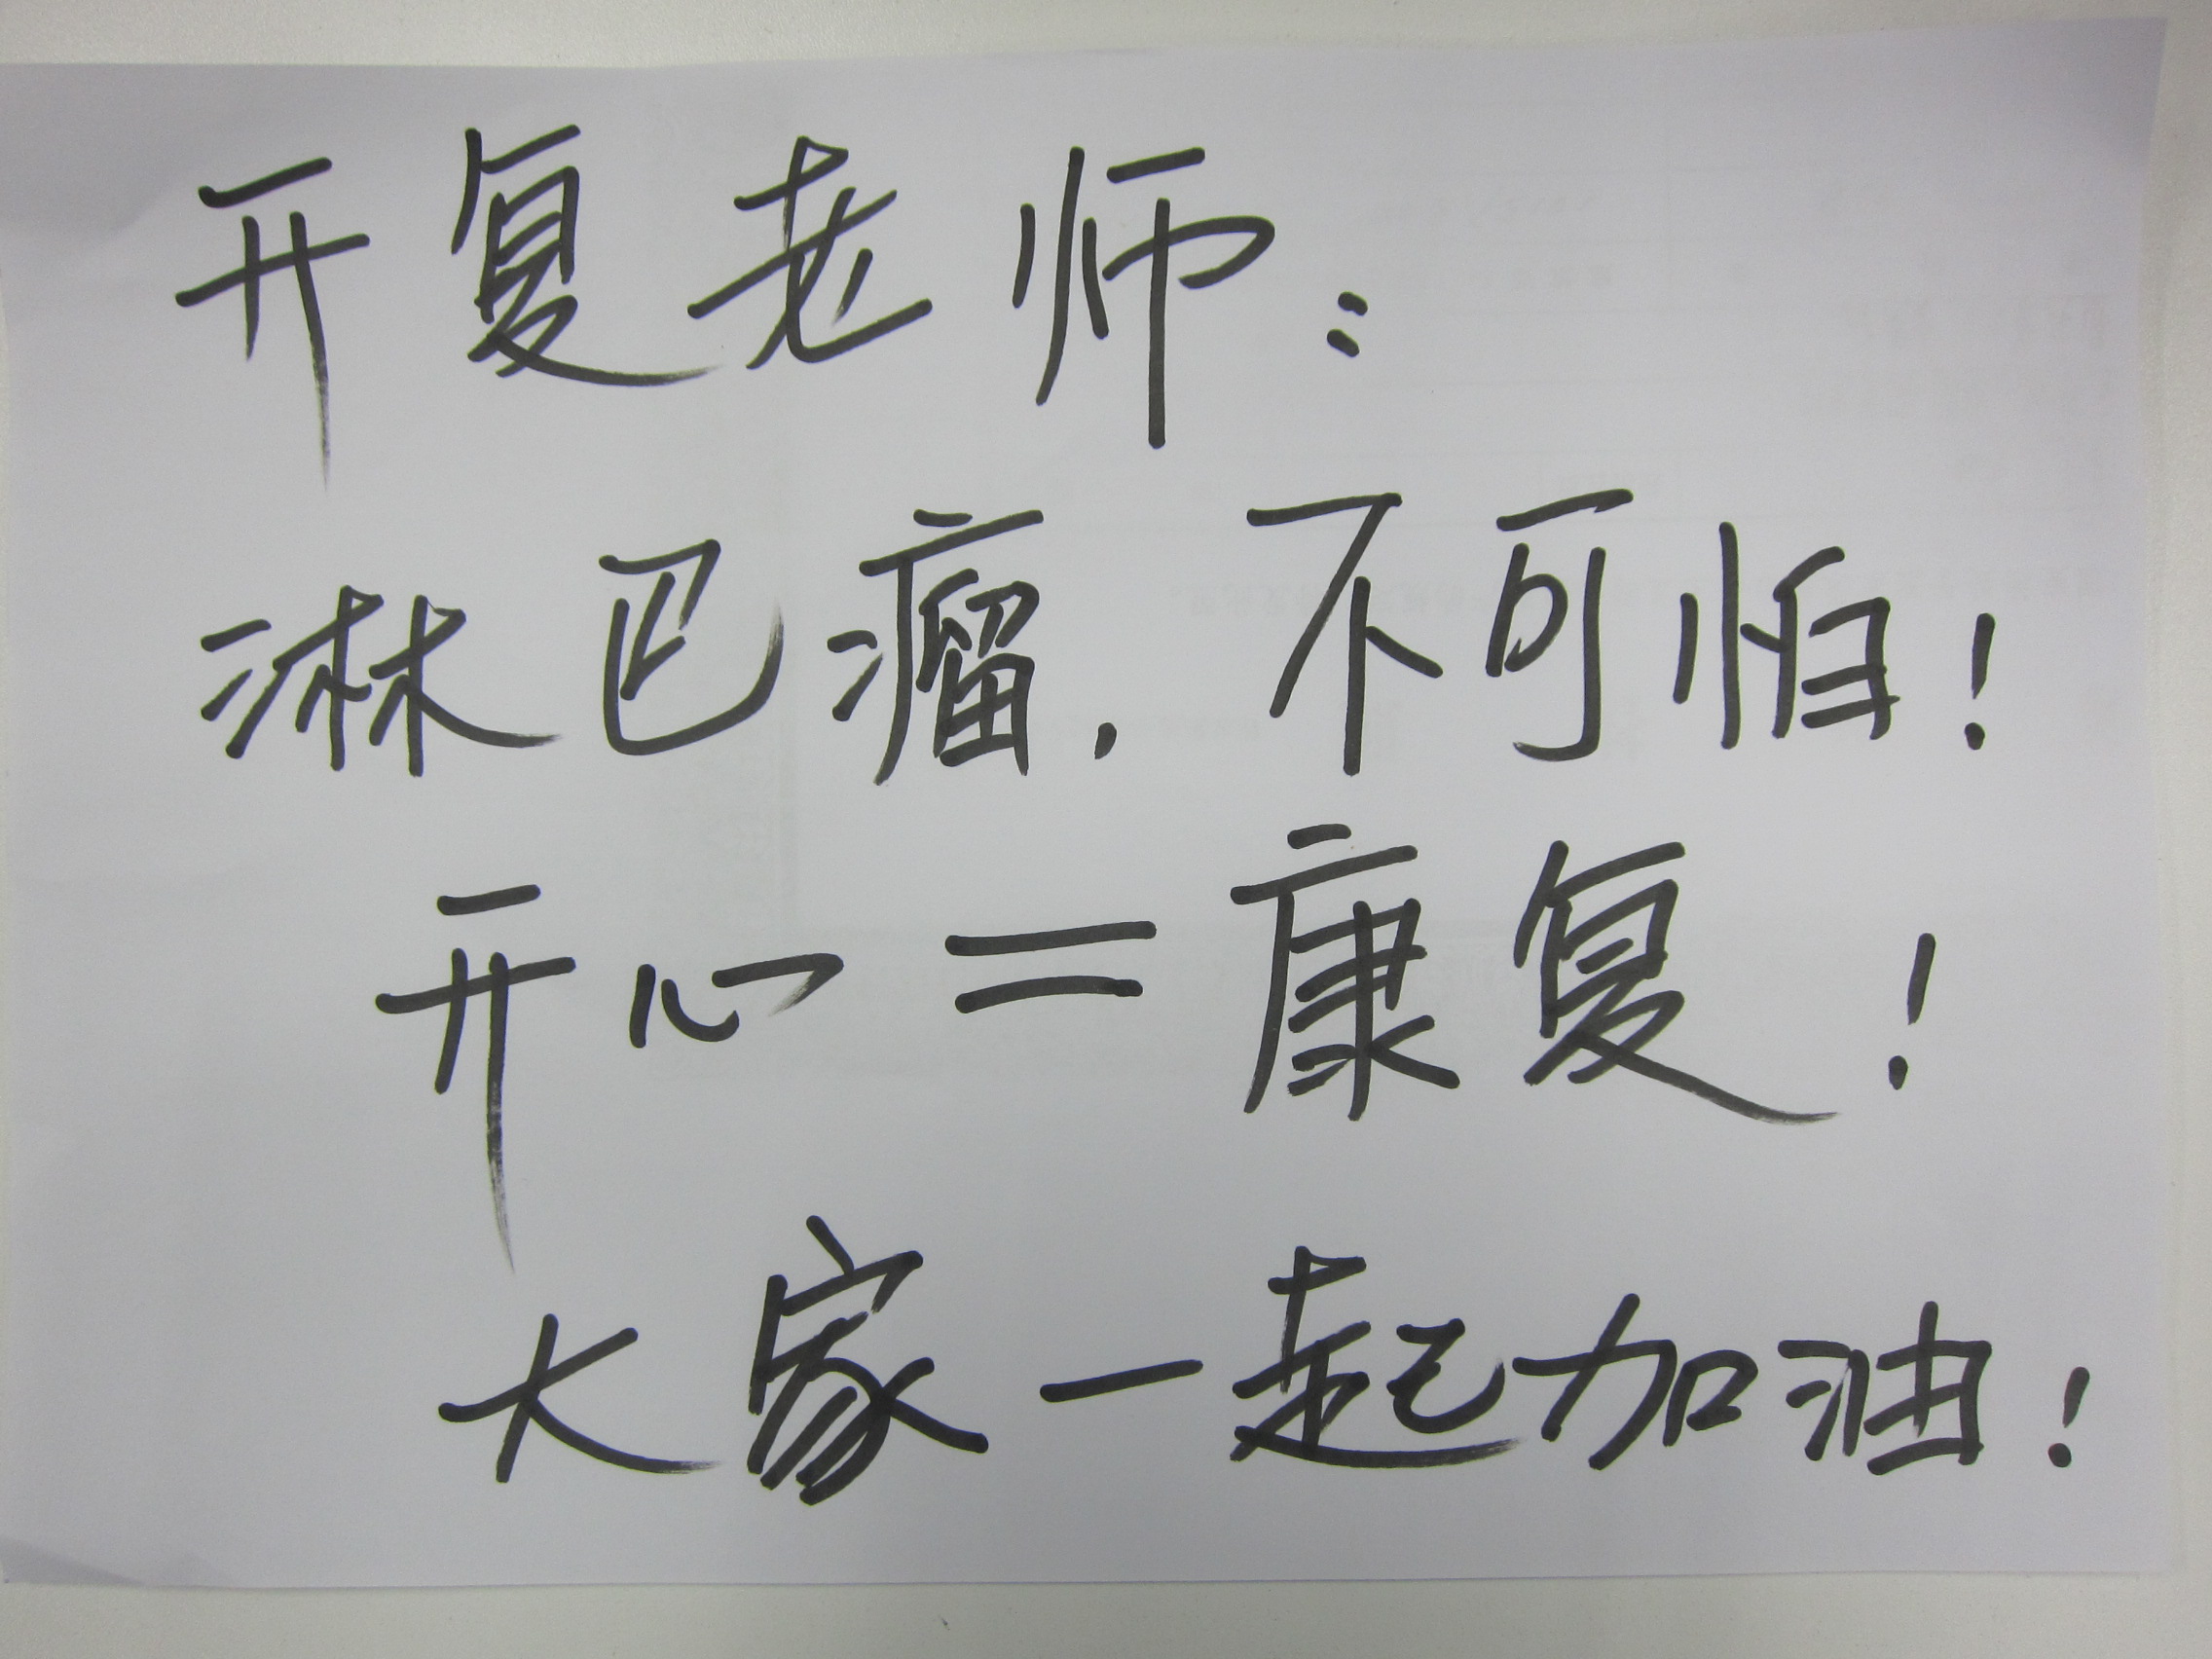 开复老师：
淋巴瘤，不可怕！
开心＝康复！
大家一起加油！